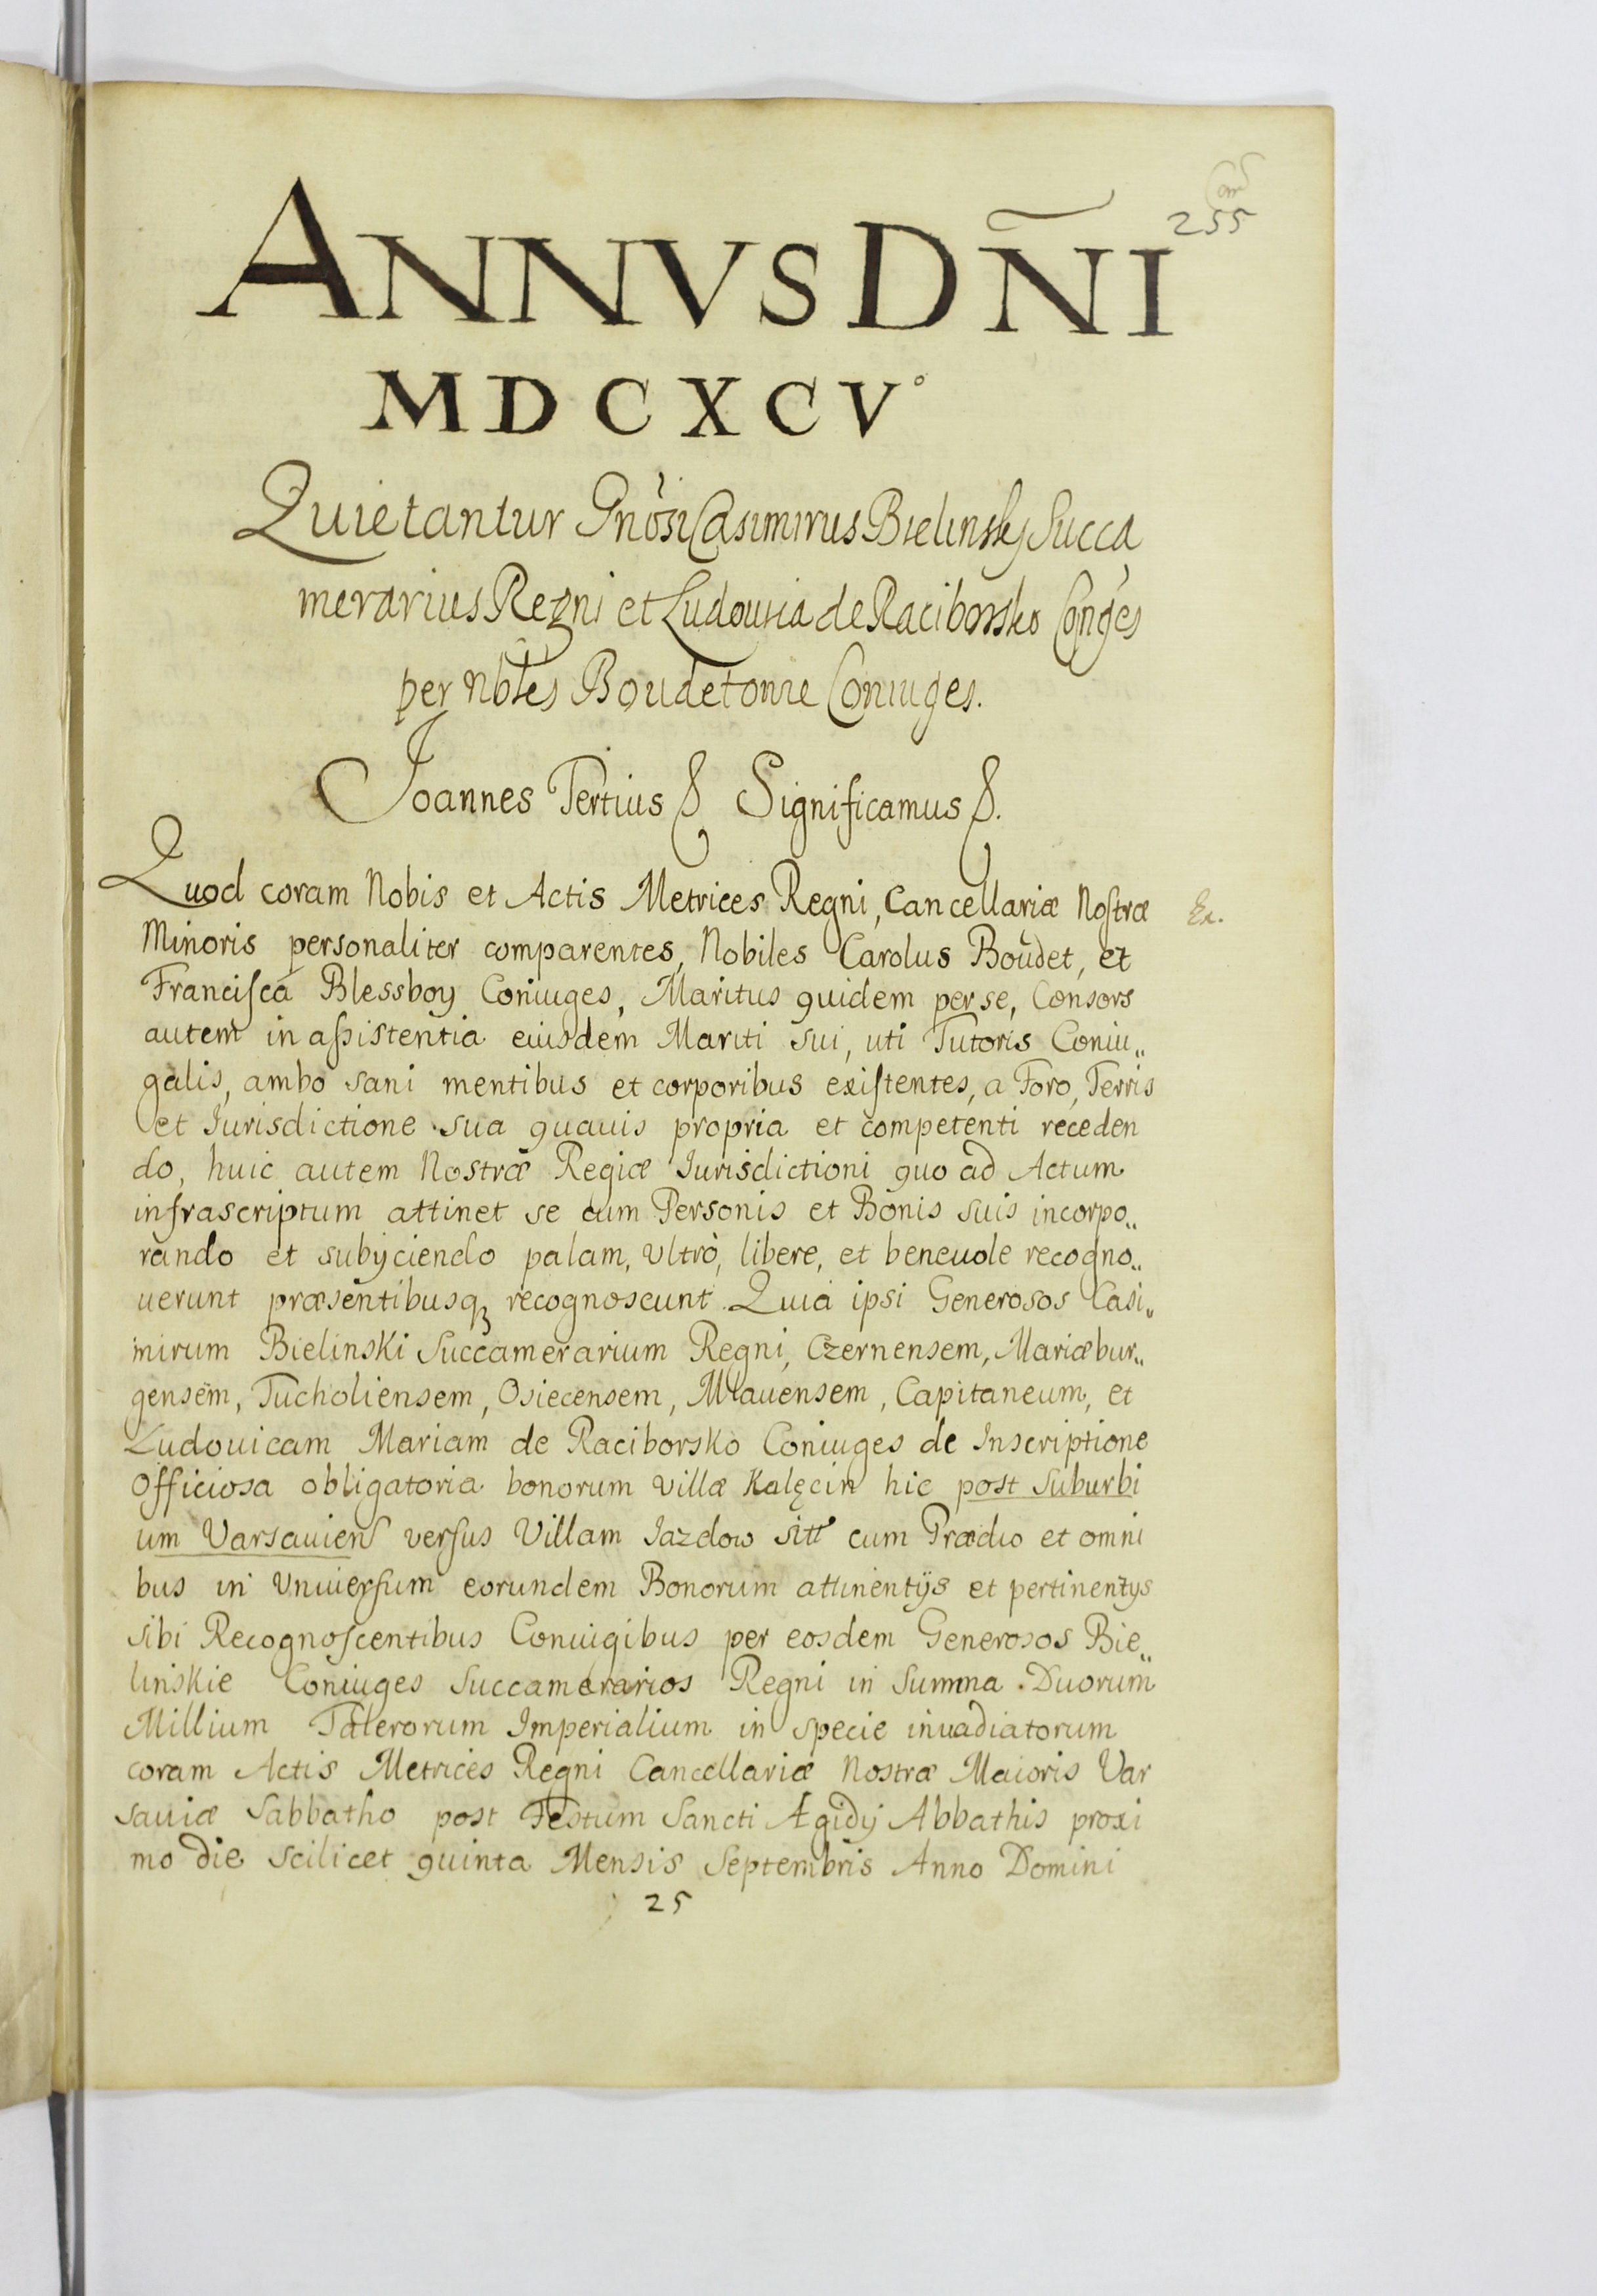 255
ANNVS DÑI
MDCXCV°
Quietantur Gnosi Casimirus Bielinsky Succa
merarius Regni et Ludouica de Raciborsko Conges
per Nbles Boudetowie Coniuges.
Joannes Tertius Significamus
Quod coram Nobis et Actis Metrices Regni, Cancellariæ Nostræ
Minoris personaliter comparentes, Nobiles Carolus Boudet, et
Francisca Blessboy Coniuges, Maritus quidem per se, Consors
autem in assistentia eiusdem Mariti sui, uti Tutoris Coniu„
galis, ambo sani mentibus et corporibus existentes, a Foro, Terris
et Iurisdictione sua quauis propria et competenti receden
do, huic autem Nostræ Regiæ Iurisdictioni quo ad Actum
infrascriptum attinet se cum Personis et Bonis suis incorpo„
rando et subijciendo palam, ultrò, libere, et beneuole recogno„
uerunt præsentibusq; recognoscunt. Quia ipsi Generosos Casi„
mirum Bielinski Succamerarium Regni, Czernensem, Mariæbur„
gensem, Tucholiensem, Osiecensem, Mlauensem, Capitaneum, et
Ludouicam Mariam de Raciborsko Coniuges de Inscriptione
Officiosa obligatoria bonorum villæ Kalęcin hic post suburbi
um Varsauiens versus Villam Jazdow sitt cum Prædio et omni
bus in Vniuersum eorundem Bonorum attinentijs et pertinentijs
sibi Recognoscentibus Coniugibus per eosdem Generosos Bie„
linskie Coniuges Succamerarios Regni in Summa Duorum
Millium Talerorum Imperialium in specie inuadiatorum
coram Actis Metrices Regni Cancellariæ Nostræ Maioris Var
sauiæ Sabbatho post Festum Sancti Ægidij Abbathis proxi
mo die scilicet quinta Mensis Septembris Anno Domini
25